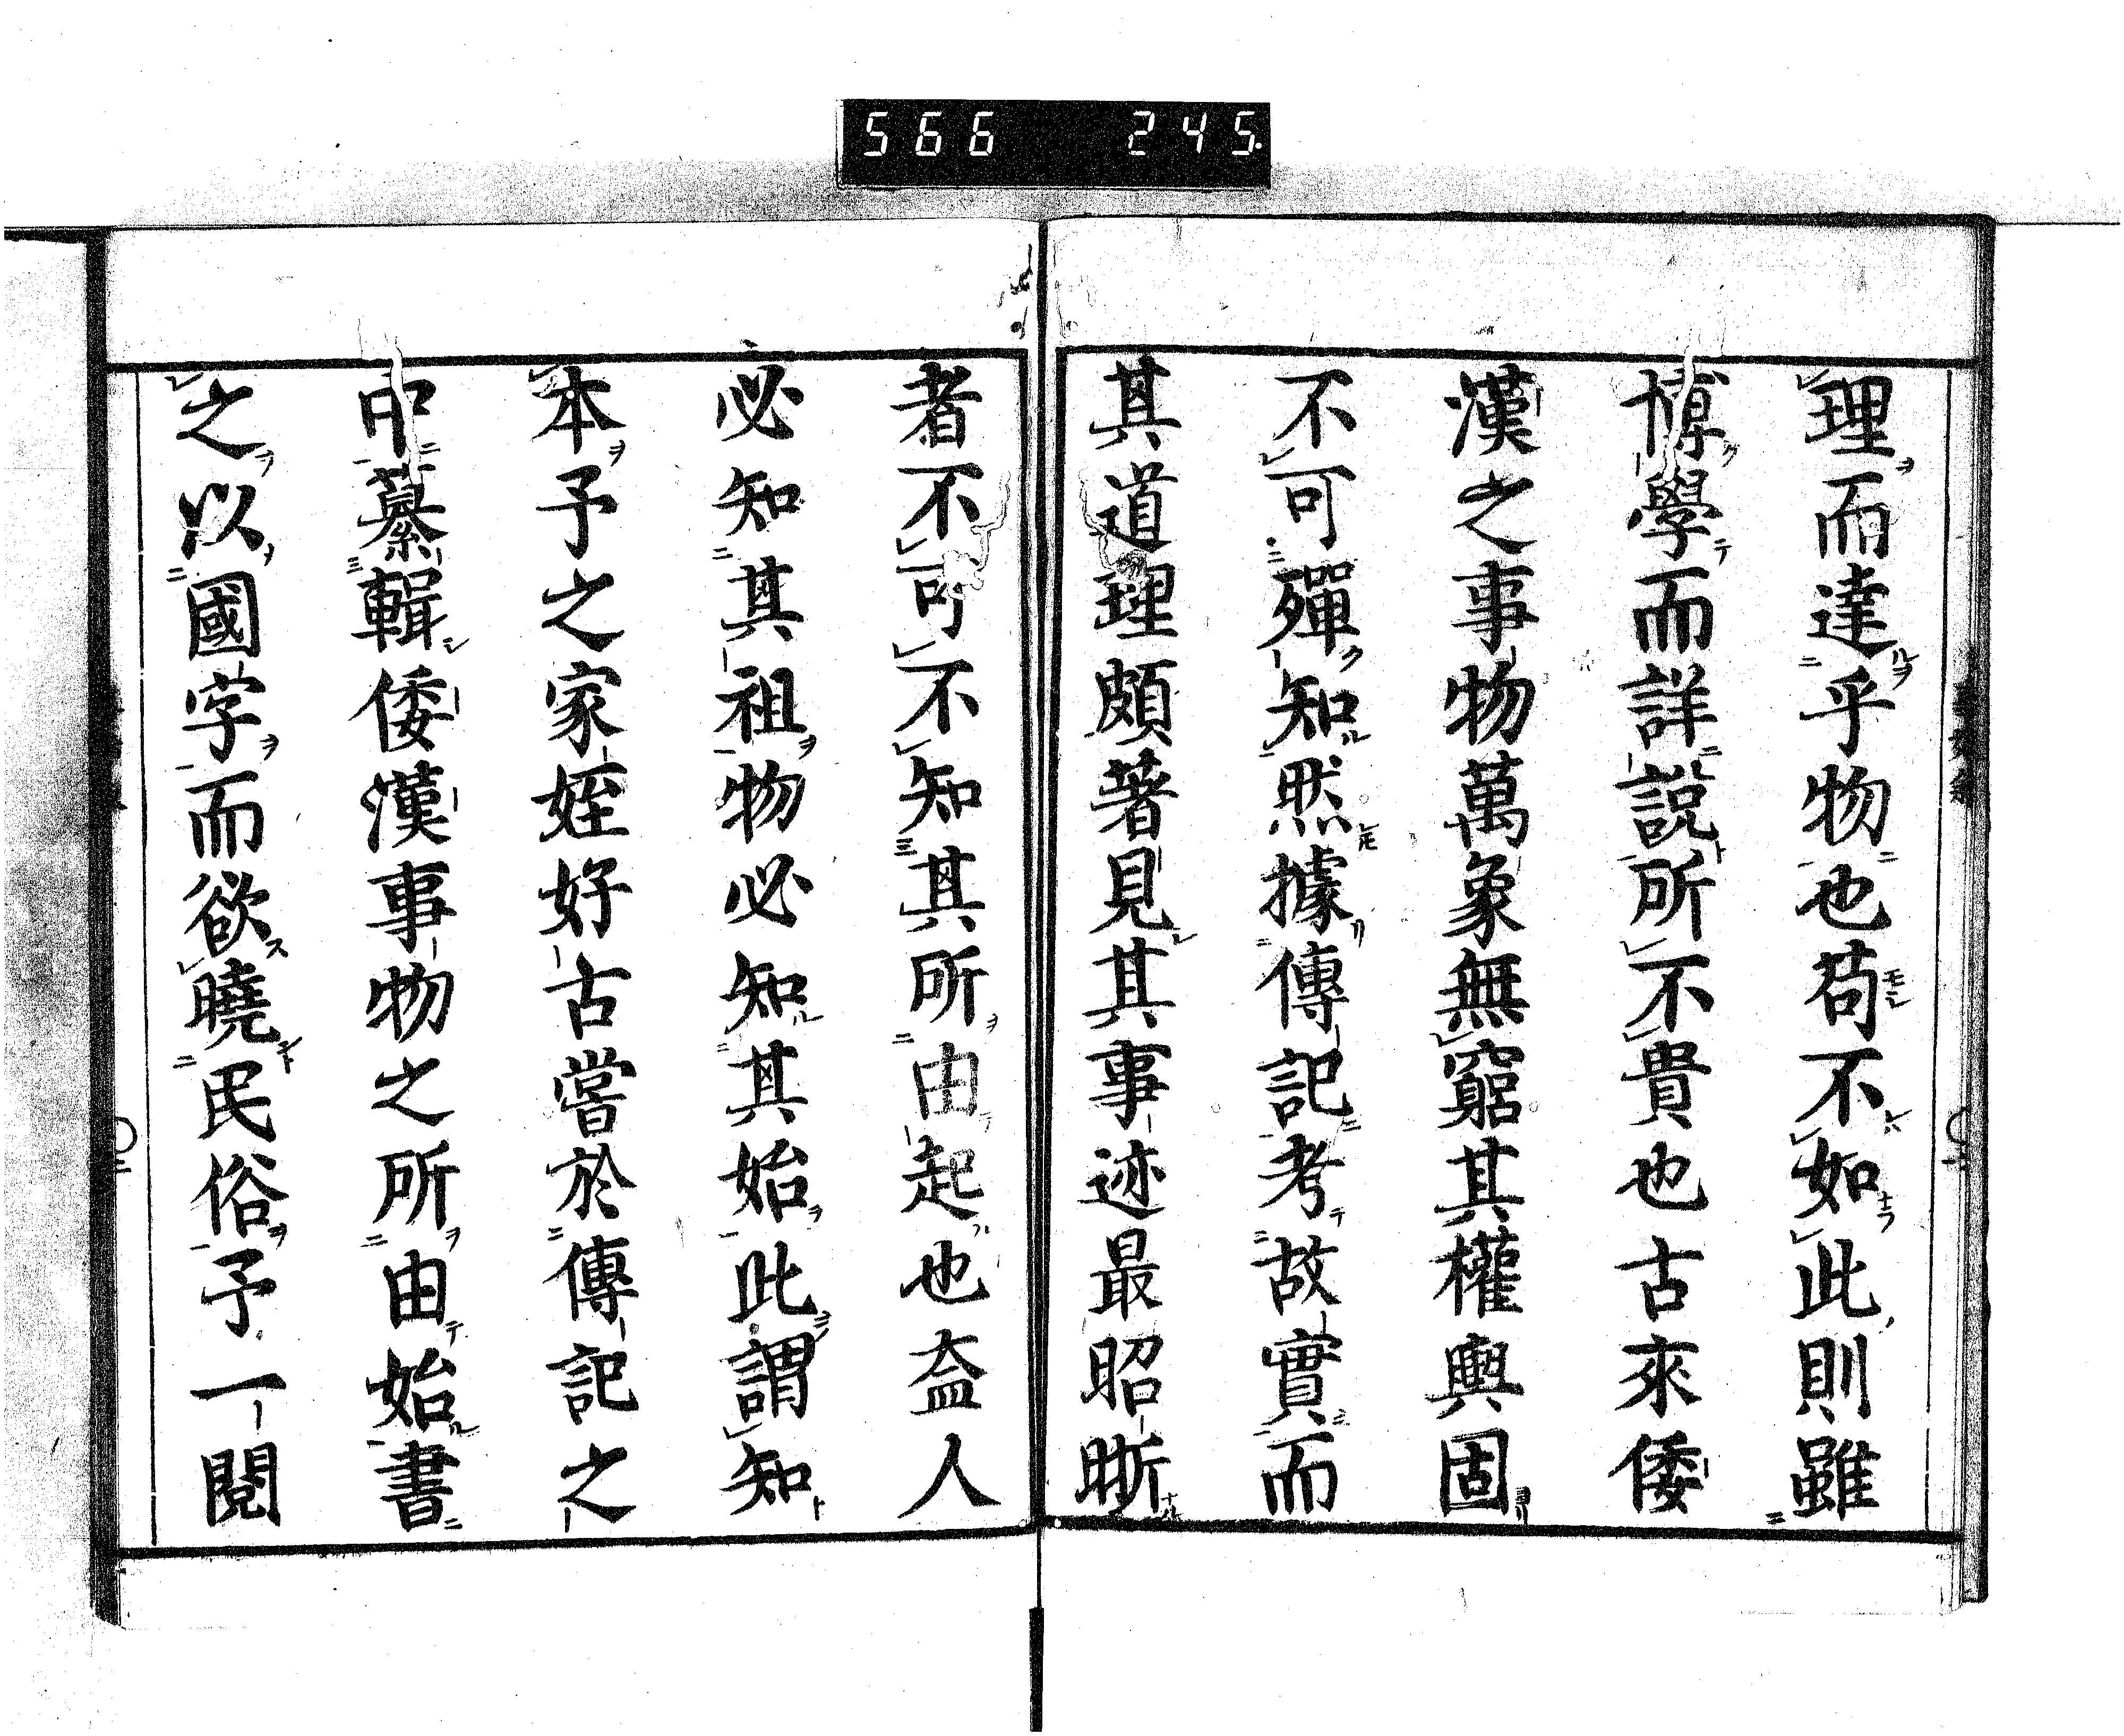 566 245
理而達乎物也苟不如此則雖
博學而詳說所不貴也古來倭
漢之事物萬象無窮其權輿固
不可殫知然據傳記考故實而
其道理頗著見其事迹最昭晣
者不可不知其所由起也盇人
必知其祖物必知其始此謂知
本予之家姪好古嘗於傳記之
中纂輯倭漢事物之所由始書
之以國字而欲曉民俗予一閱